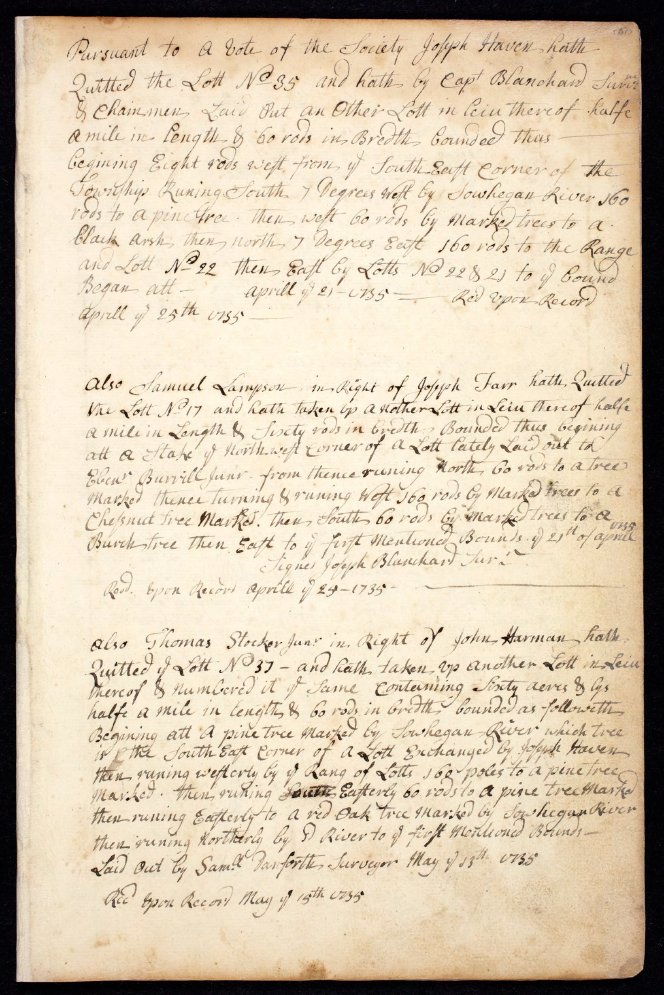 Pursuant to a Vote of the Society Joseph Haven hath
Quitted the Lott No 35 and hath by Capt Blanchard Survr
& Chainmen Laid Out an Other Lott in leiu thereof halfe
a mile in Length & 60 rods in Bredth bounded thus
begining Eight rods west from ye South East Corner of the
Township Runing South 7 Degrees West by Sowhegan River 160
rods to a pine tree then west 60 rods by Marked trees to a
black arsh then north 7 Degrees East 160 rods to the Range
and Lott No 22 then East by Lotts No 22 & 21 to ye bound
Began att — aprill ye 21 - 1735 — Recd Upon Record
aprill ye 25th 1735 —
also Samuel Lampson in Right of Joseph Farr hath Quitted
the Lott No 17 and hath taken up another Lott in Leiu thereof halfe
a mile in Length & Sixty rods in bredth Bounded thus begining
att a Stake ye Northwest Corner of a Lott lately Laid out to
Ebenr Burrill Junr from thence runing North 60 rods to a tree
Marked thence turning & runing West 160 rods by Marked trees to a
Chesnut tree Marked. then South 60 rods by Marked trees to a
Burch tree then East to ye first Mentioned Bounds ye 21th of aprill 1735
Signed Joseph Blanchard Survr
Recd. Upon Record aprill ye 24 - 1735 -
also Thomas Stocker Junr in Right of John Harman hath
Quitted ye Lott No 37 - and hath taken up another Lott in Leiu
thereof & numbered it ye Same Containing Sixty acres & lys
halfe a mile in length & 60 rods in bredth bounded as followeth
Begining att a pine tree marked by Sowhegan River which tree
is the South East Corner of a Lott Enchanged by Joseph Haven
then runing westerly by ye Rang of Lotts 160 poles to a pine tree
Marked. then runing Easterly 60 rods to a pine tree Marked
then runing Easterly to a red Oak tree Marked by Sowhegan River
then runing Northerly by sd River to ye first Mentioned Bounds —
Laid Out by Samll Danforth Surveyor May ye 13th 1735
Recd Upon Record May ye 15th 1735